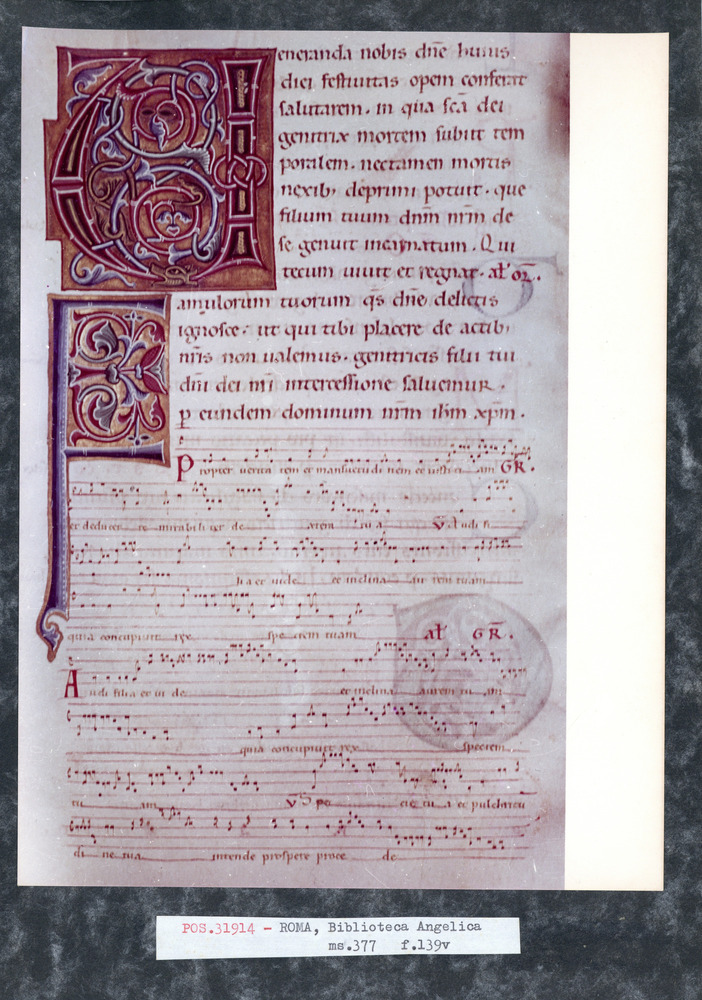 Veneranda nobis dñe huius
diei festiuitas opem conferat
salutarem. in qua scã dei
genitrix mortem subiit tem
poralem. nec tamen mortis
nexib; deprimi potuit. que
filium tuum dñm nrm de
se genuit incarnatum. Qui
tecum uiuit et regnat. al' oR.
Famulorum tuorum qs dñe delictis
ignosce. ut qui tibi placere de actib;
nris non ualemus. genitricis filii tui
dñi dei nri intercessione saluemur.
p eundem dominum nrm ihm xpm.
Propter uerita tem et mansuetudi nem et iusti ci am GR.
et deducet te mirabili ter de xtera tu a V Audi fi
lia et uide et inclina aurem tuam
quia concupiuit rex spe ciem tuam
al' GR.
Audi filia et ui de et inclina aurem tu am
quia concupiuit rex speciem
tu am V Spe cie tu a et pulchritu
di ne tua intende prospere proce de
POS.31914 - ROMA, Biblioteca Angelica
ms.377 f.139v